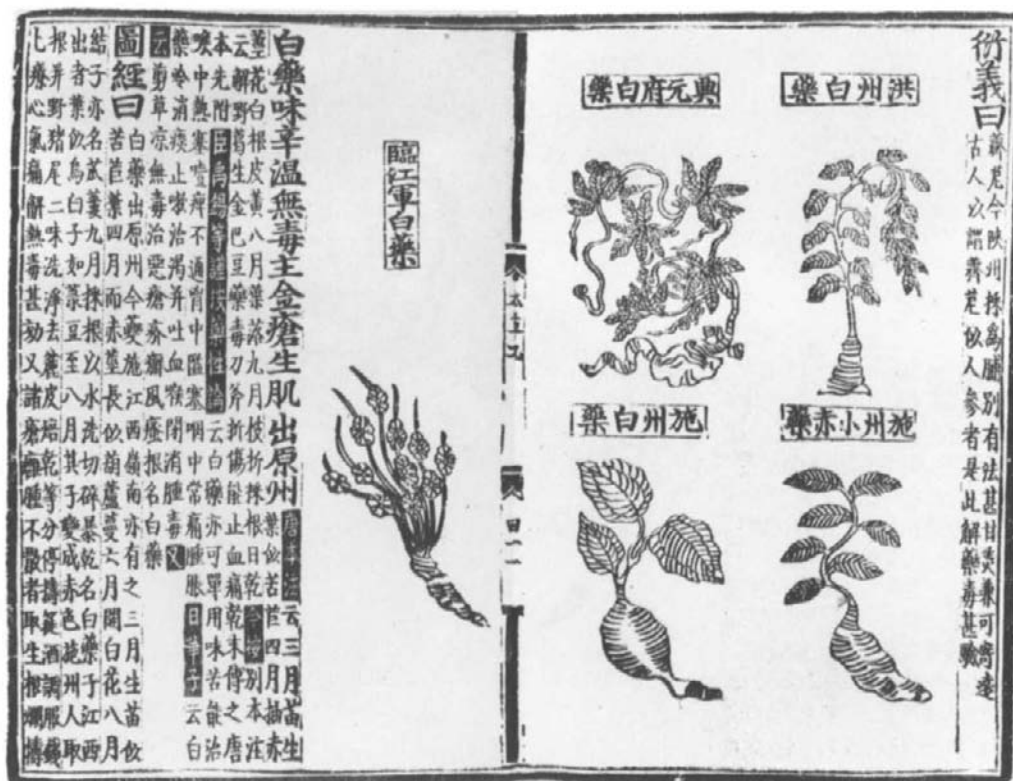 衍義曰
薺苨今陝州採為脯別有法甚甘美兼可寄遠
古人以謂薺苨似人參者是此解藥毒甚驗
洪州白藥
興元府白藥
施州小赤藥
施州白藥
臨江軍白藥
白藥味辛溫無毒主金瘡生肌出原州
唐本注云三月苗生葉似苦苣四月抽赤
莖花白根皮黃八月葉落九月枝折採根日乾今按別本注
云解野葛生金巴豆藥毒刀斧折傷能止血痛乾末傅之唐
本先附臣禹錫等謹按藥性論云白藥亦可單用味苦能治
喉中熱塞噎痺不通胷中隘塞咽中常痛腫脹日華子云白
藥冷消痰止嗽治渴并吐血喉閉消腫毒又
云翦草涼無毒治惡瘡疥癬風瘙根名白藥
圖經曰
白藥出原州今夔施江西嶺南亦有之三月生苗似
苦苣葉四月而赤莖長似葫蘆蔓六月開白花八月
結子亦名瓜蔞九月採根以水洗切碎暴乾名白藥子江西
出者葉似烏臼子如菉豆至八月其子變成赤色施州人取
根并野猪尾二味洗淨去麤皮焙乾等分停擣篩酒調服錢
匕療心氣痛解熱毒甚効又諸瘡癰腫不散者取生根爛擣